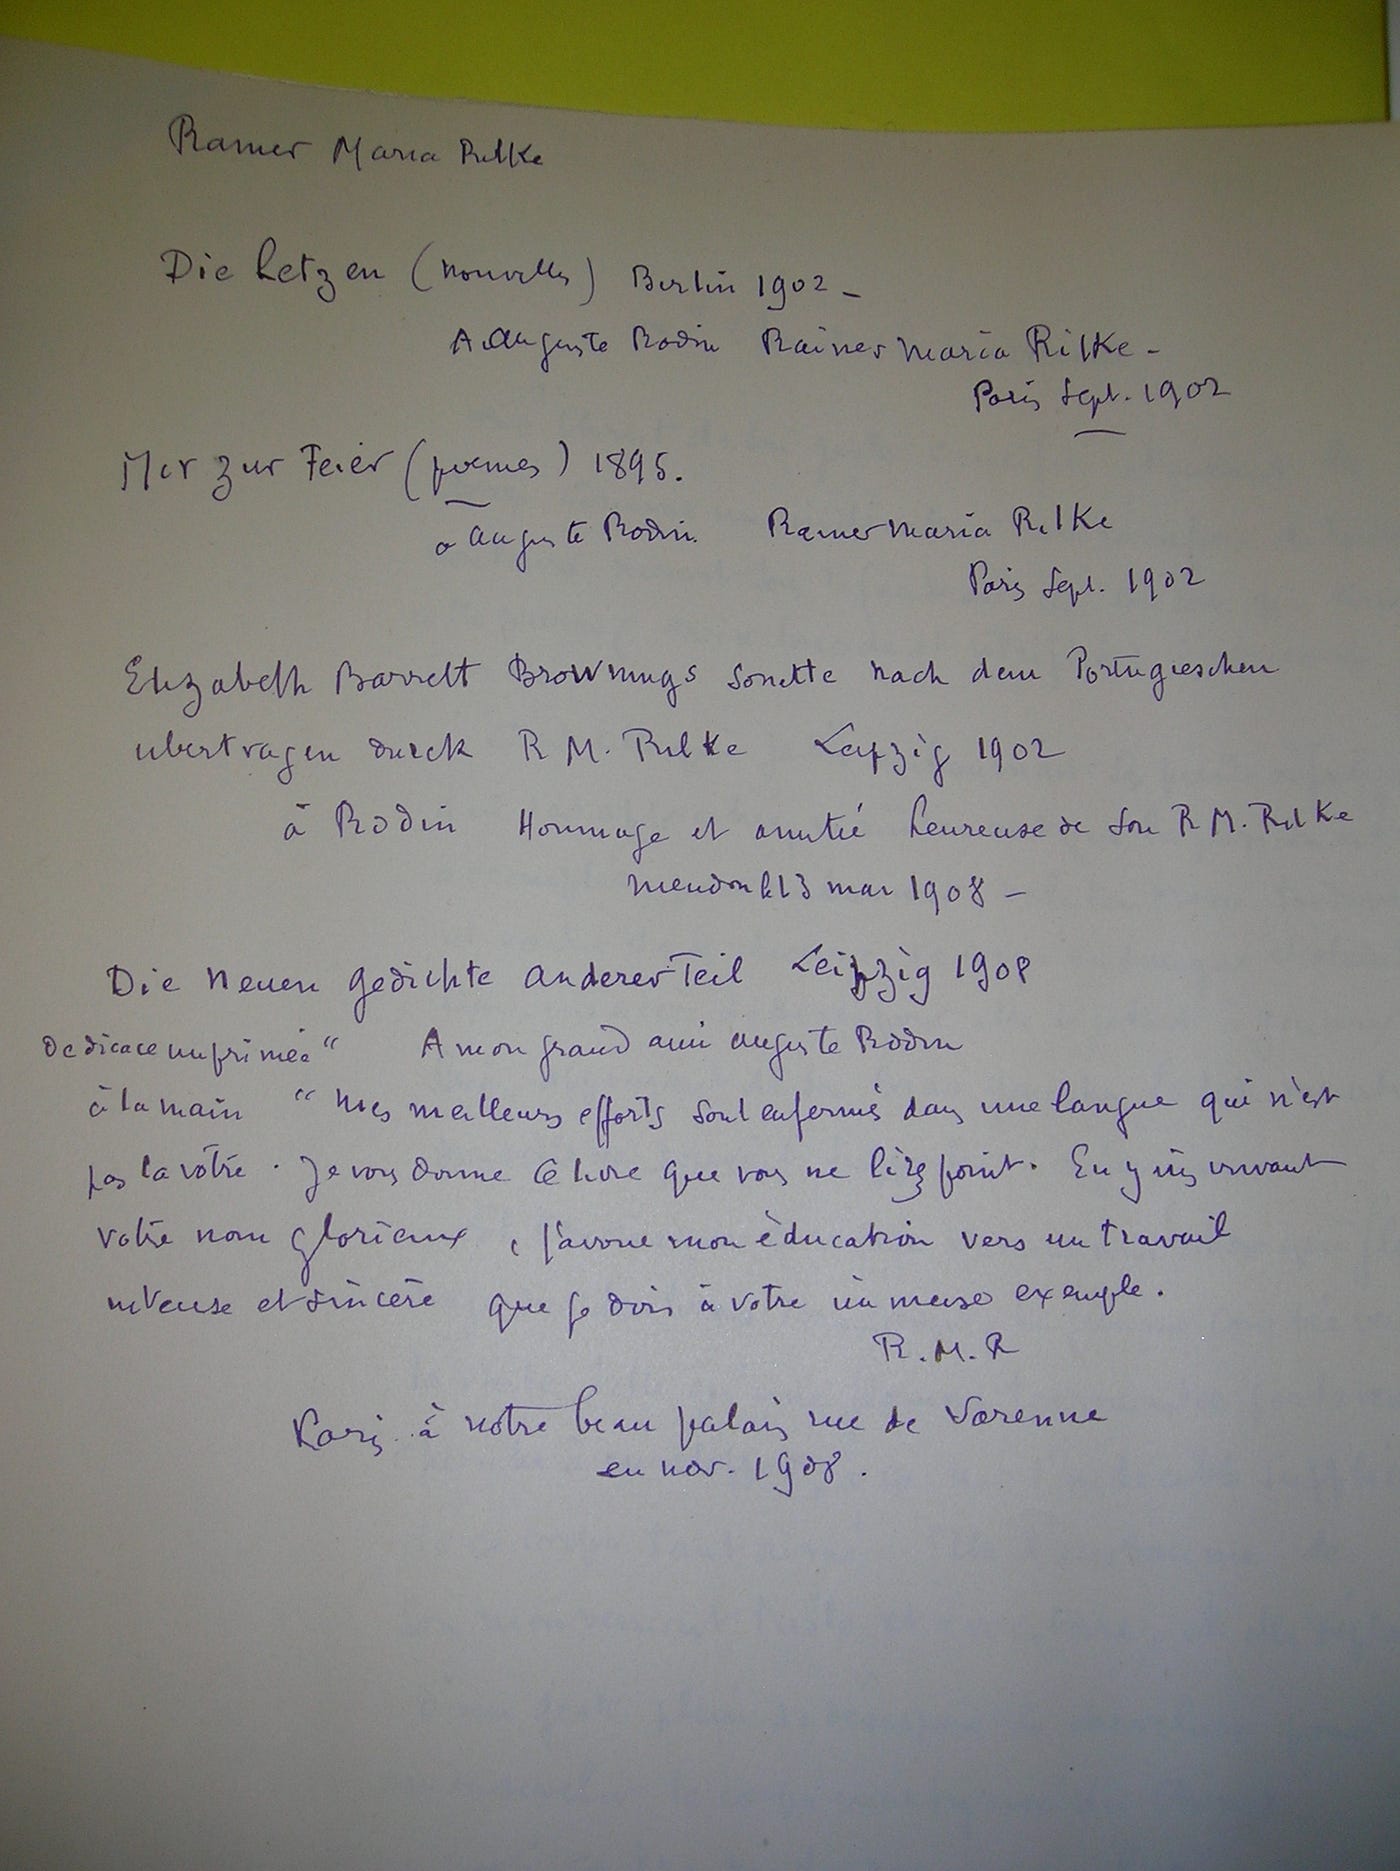 Rainer Maria Rilke
Die Letzen (nouvelles) Berlin 1902 -
A Auguste Rodin Rainer Maria Rilke -
Paris Sept. 1902
Mir zur Feier (poemes) 1895.
a Auguste Rodin. Rainer Maria Rilke
Paris Sept. 1902
Elizabeth Barrett Brownings Sonette nach dem Portugieschen
ubertragen durch R M. Rilke Leipzig 1902
à Rodin Hommage et amitié heureuse de son R M. Rilke
Meudon le 13 mai 1908 -
Die Neuen Gedichte Anderer Teil Leipzig 1908
Dedicace imprimée “ A mon grand ami Auguste Rodin
à la main “ Mes meilleurs efforts sont enfermés dans une langue qui n'est
pas la vôtre. Je vous donne ce livre que vous ne lirez point. En y inscrivant
votre nom glorieux, j'avoue mon éducation vers un travail
et sincère que je dois à votre immense exemple.
R.M.R
Paris à notre beau palais rue de Varenne
en nov. 1908.